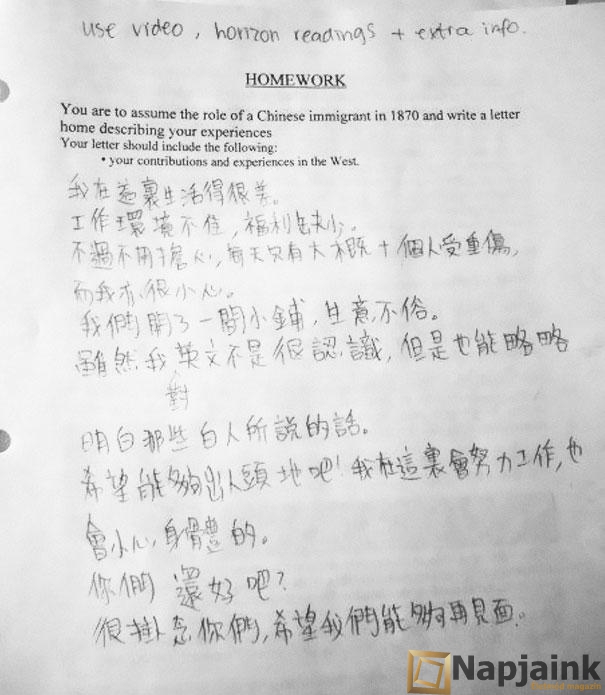 use video, horizon readings + extra info.
HOMEWORK
You are to assume the role of a Chinese immigrant in 1870 and write a letter
home describing your experiences
Your letter should include the following:
• your contributions and experiences in the West.
我在這裏生活得很差。
工作環境不佳,福利缺少。
不過不用擔心,每天只有大概十個人受重傷,
而我亦很小心。
我們開了一間小鋪,生意不俗。
雖然我英文不是很認識,但是也能略略
對
明白那些白人所說的話。
希望能夠出人頭地吧!我在這裏會努力工作,也
會小心身體的。
你們還好吧?
很掛念你們,希望我們能夠再見面。
Napjaink
magazin